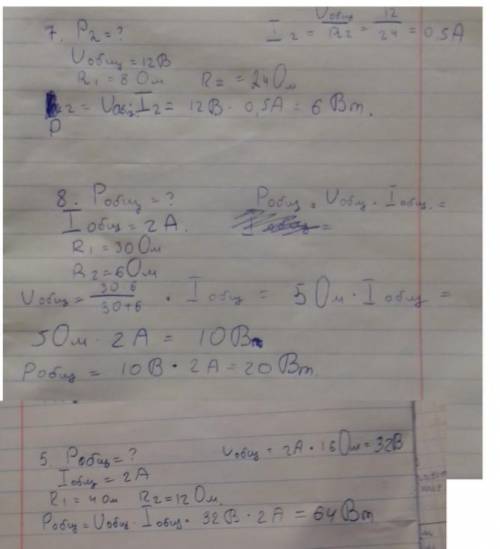 7. P2 = ?
I2 = Uобщ/R2 = 12/24 = 0,5A
Uобщ = 12В
R1 = 8 Ом R2 = 24 Ом
P2 = Uобщ · I2 = 12В · 0,5A = 6 Вт.
8. Pобщ = ?
Pобщ = Uобщ · Iобщ =
Iобщ = 2 A.
R1 = 30 Ом
R2 = 6 Ом
Uобщ = 30·6/30+6 · Iобщ = 5 Ом · Iобщ =
5 Ом · 2 A = 10 В
Pобщ = 10 В · 2 A = 20 Вт
5. Pобщ = ?
Uобщ = 2A · 16 Ом = 32В
Iобщ = 2A
R1 = 4 Ом R2 = 12 Ом.
Pобщ = Uобщ · Iобщ · 32В · 2A = 64 Вт